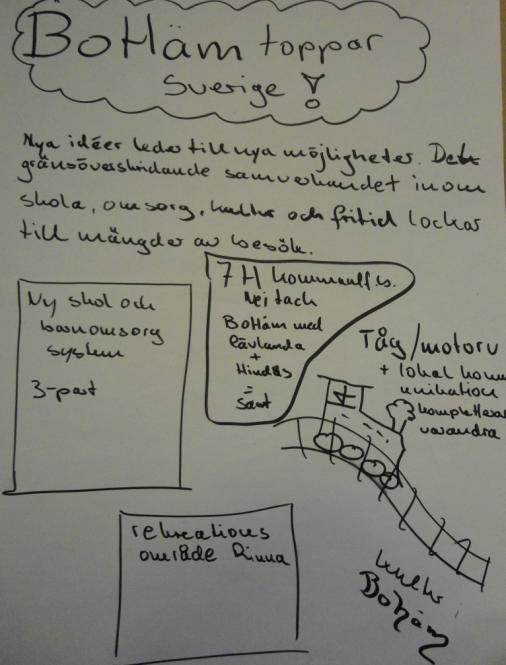 BoHäm toppar
Sverige!
Nya idéer leder till nya möjligheter. Det
gränsöverskridande samverkandet inom
skola, omsorg, kultur och fritid lockar
till mängder av besök.
Ny skol och
barnomsorg
system
3-part
7H
Nej tack
BoHäm med
Lävlanda
+
Hindås
=
Sant
Tåg/motorv
+ lokal komm
unikation
kompletterar
varandra
rekreations
område Rinna
kultur i
BoHäm